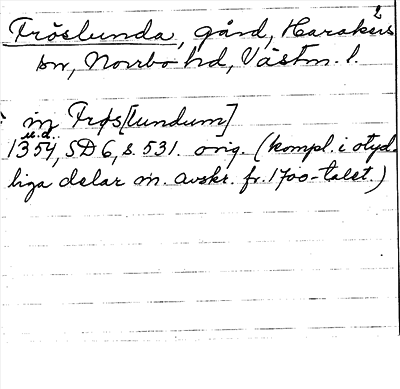 Fröslunda, gård, Harakers
sn, Norrbo hd, Västm. l.
in Frøs[lundum]
u.d.
1354, SD 6, s. 531. orig. (kompl. i otyd-
liga delar m. avskr. fr. 1700-talet.)